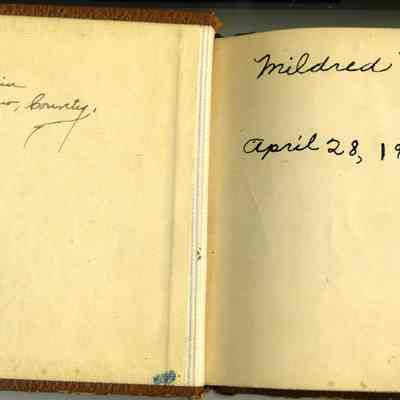 County.
Mildred
April 28, 19